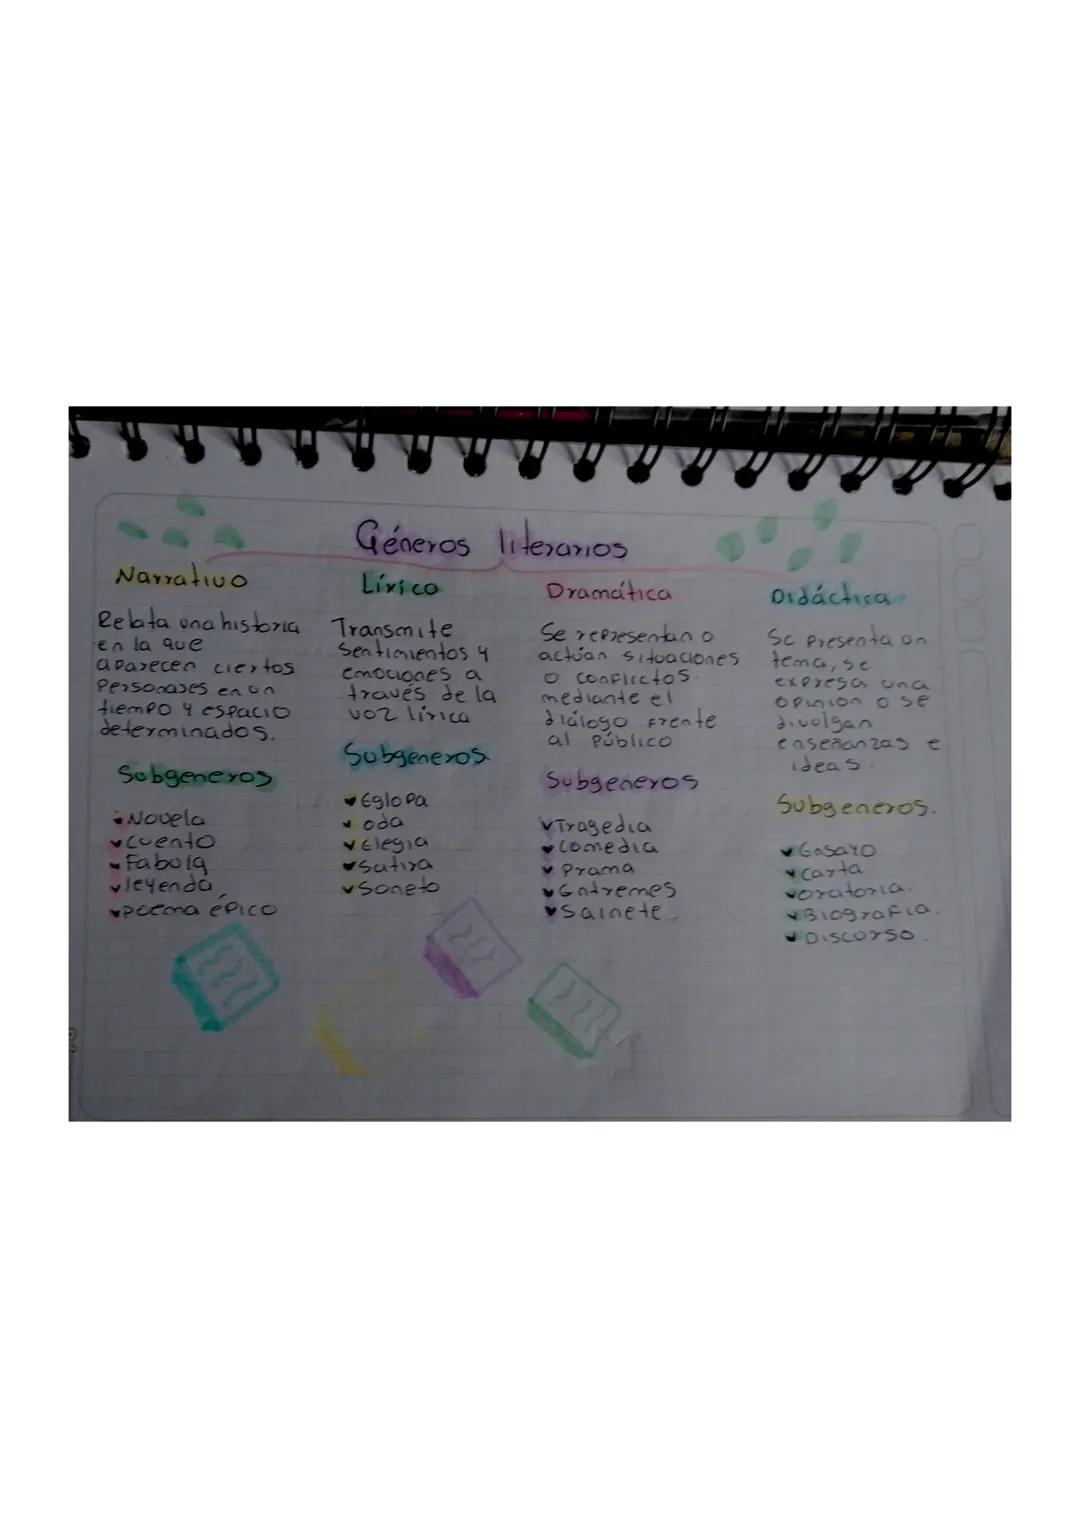 Géneros literarios
Narrativo
Relata una historia
en la que
aparecen ciertos
Personajes en un
tiempo y espacio
determinados.
Subgeneros
Novela
Cuento
Fabula
leyenda
poema épico
Lírico
Transmite
Sentimientos y
emociones a
través de la
voz lírica
Subgeneros
Eglopa
oda
elegia
Satira
Soneto
Dramática
Se representan o
actúan situaciones
o conflictos.
mediante el
diálogo frente
al Público
Subgeneros
Tragedia
Comedia
Drama
Entremes
Sainete
Didáctica
Se presenta un
tema, se
expresa una
opinion o se
divulgan
enseñanzas e
ideas.
Subgeneros.
Ensayo
carta
oratoria.
Biografia.
Discurso.